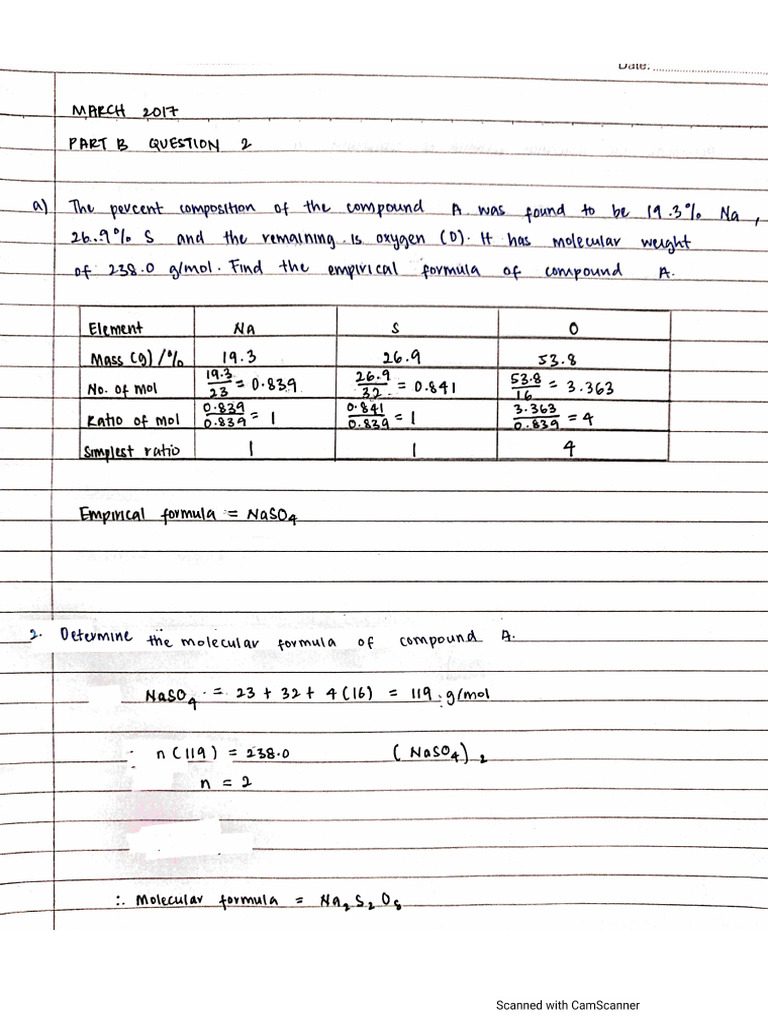 Date:
MARCH 2017
PART B QUESTION 2
a) The percent composition of the compound A was found to be 19.3% Na,
26.9% S and the remaining is oxygen (O). It has molecular weight
of 238.0 g/mol. Find the empirical formula of compound A.
Element Na S O
Mass (g) /% 19.3 26.9 53.8
No. of mol 19.3/23 = 0.839 26.9/32 = 0.841 53.8/16 = 3.363
Ratio of mol 0.839/0.839 = 1 0.841/0.839 = 1 3.363/0.839 = 4
Simplest ratio 1 1 4
Empirical formula = NaSO₄
2. Determine the molecular formula of compound A.
NaSO₄ = 23 + 32 + 4(16) = 119 g/mol
n(119) = 238.0 (NaSO₄)₂
n = 2
∴ Molecular formula = Na₂S₂O₈
Scanned with CamScanner